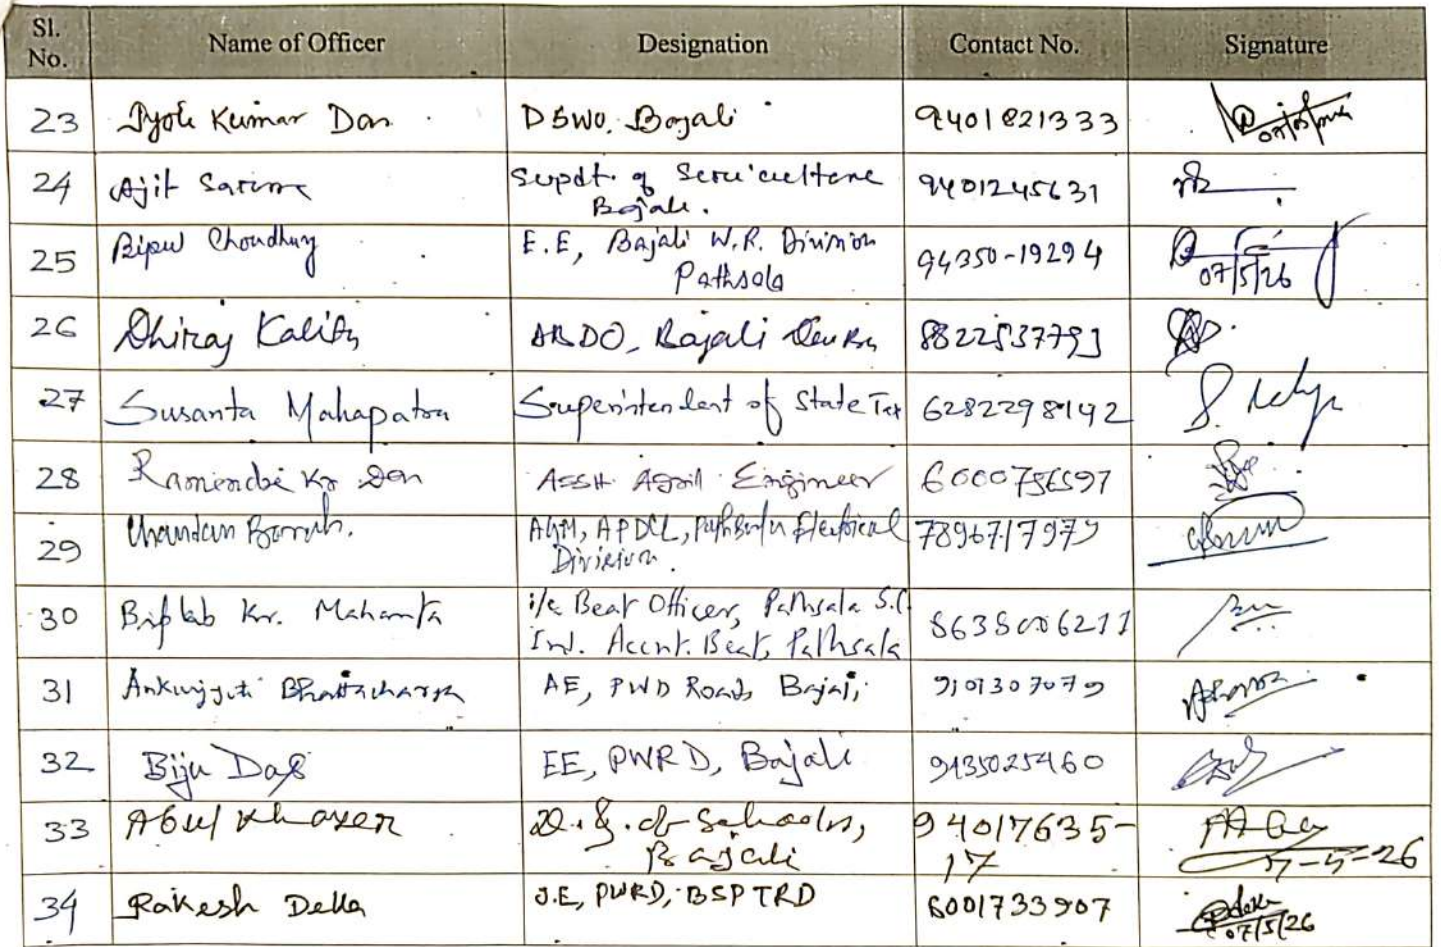 Sl. No. Name of Officer Designation Contact No. Signature
23 Jyoti Kumar Das DSWO, Bajali 9401821333
24 Ajit Sarma Supdt. of Sericulture 9401245631
Bajali.
25 Bipul Choudhury E.E, Bajali W.R. Division 94350-19294
Pathsala 07/5/26
26 Dhiraj Kalita ABDO, Bajali 8822537793
27 Susanta Mahapatra Superintendent of State Tax 6282298142
28 Kr Das Asstt Agril Engineer 6000756597
29 Chandan Baruah. AGM, APDCL, Pathsala Electrical 7896717979
Division.
30 Biplab Kr. Mahanta i/c Beat Officer, Pathsala S.C.
Ind. Accnt. Beat, Pathsala 8638006211
31 Ankurjyoti Bhattacharyya AE, PWD Roads, Bajali 9101307079
32 Biju Das EE, PWRD, Bajali 9435025460
33 Abul Khayer of Schools, 94017635-
Bajali 17 7-5-26
34 Rakesh Deka J.E, PWRD, BSPTRD 6001733907
07/5/26